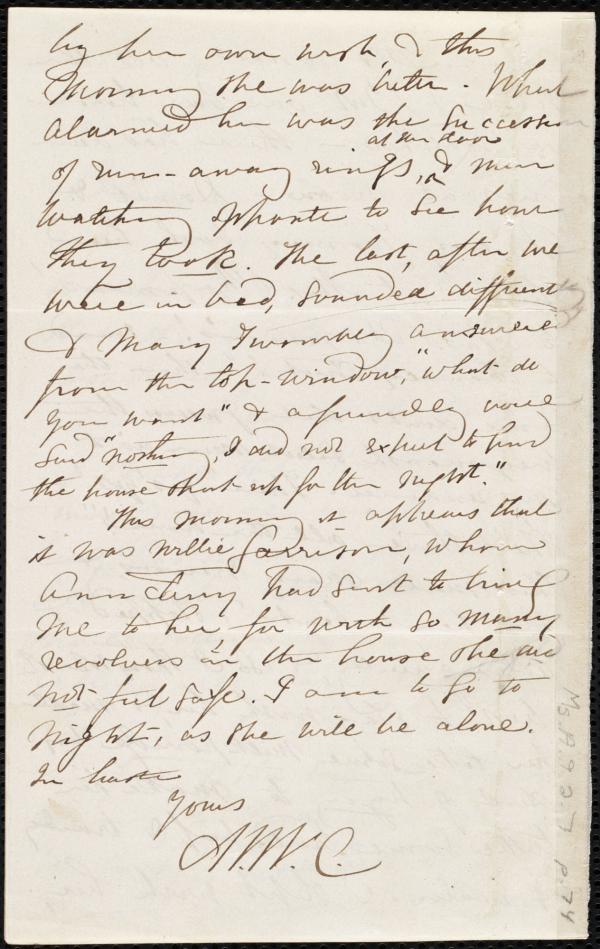 by her own wish & this
Morning she was better. What
alarmed her was the succession
at the door
of run-away rings, & men
watching opposite to see how
they took. The last, after we
were in bed, sounded different
& Mary Twombley answered
from the top-window, "what do
you want" & a friendly voice
said "nothing, I did not expect to find
the house shut up for the night."
This morning it appears that
it was Willie Garrison, whom
Ann Terry had sent to bring
me to her for with so many
revolvers in the house she did
not feel safe. I am to go to
night, as she will be alone.
In haste
Yours
A.W.C.
Ms.A.9.2.7 p.74